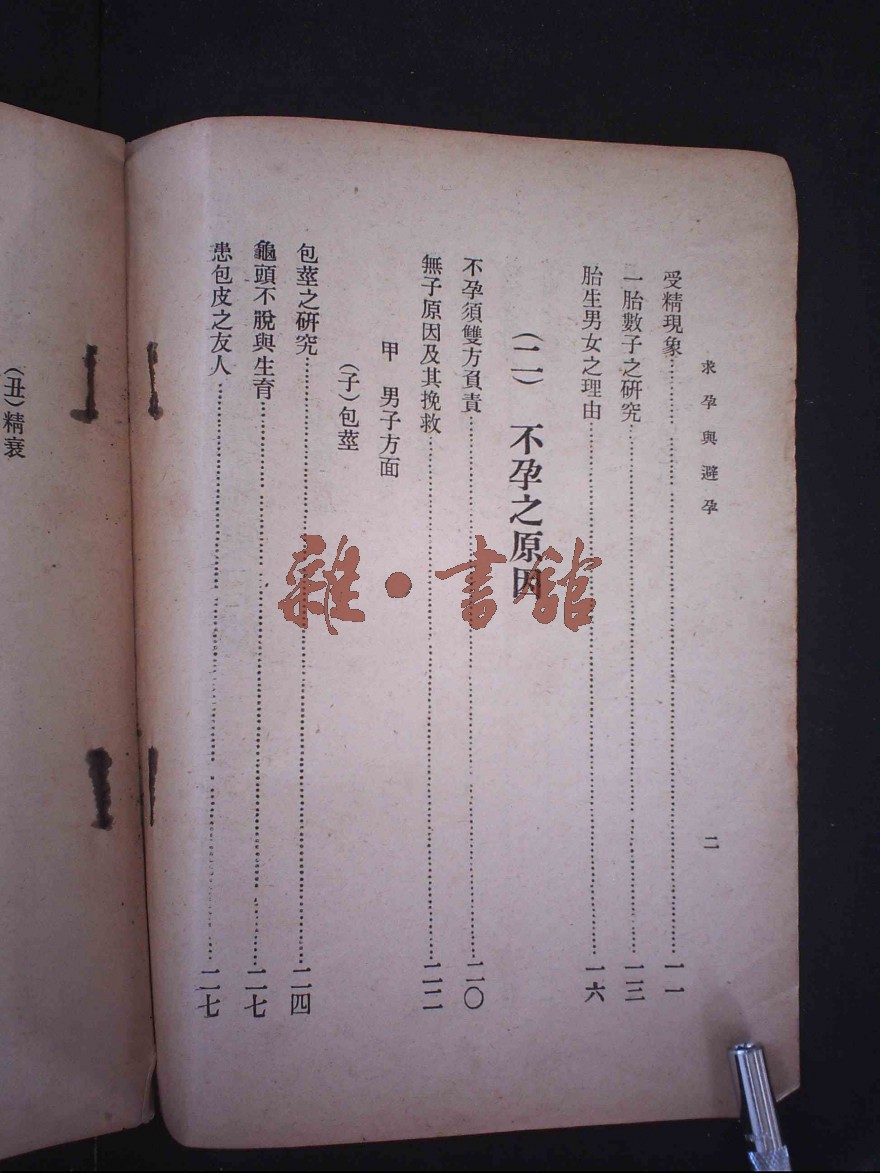 求孕與避孕 二
受精現象……一一
一胎數子之研究……一三
胎生男女之理由……一六
(二) 不孕之原因
不孕須雙方負責……二〇
無子原因及其挽救……二二
甲 男子方面
(子)包莖
包莖之研究……二四
龜頭不脫與生育……二七
患包皮之友人……二七
(丑)精衰
雜·書館